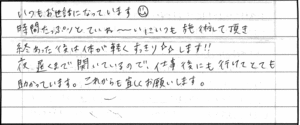 いつもお世話になっています☺
時間たっぷりとていね〜いにいつも施術して頂き
終わった後は体が軽くすっきりします!!
夜遅くまで開いているので、仕事後にも行けてとても
助かっています。これからも宜しくお願いします。